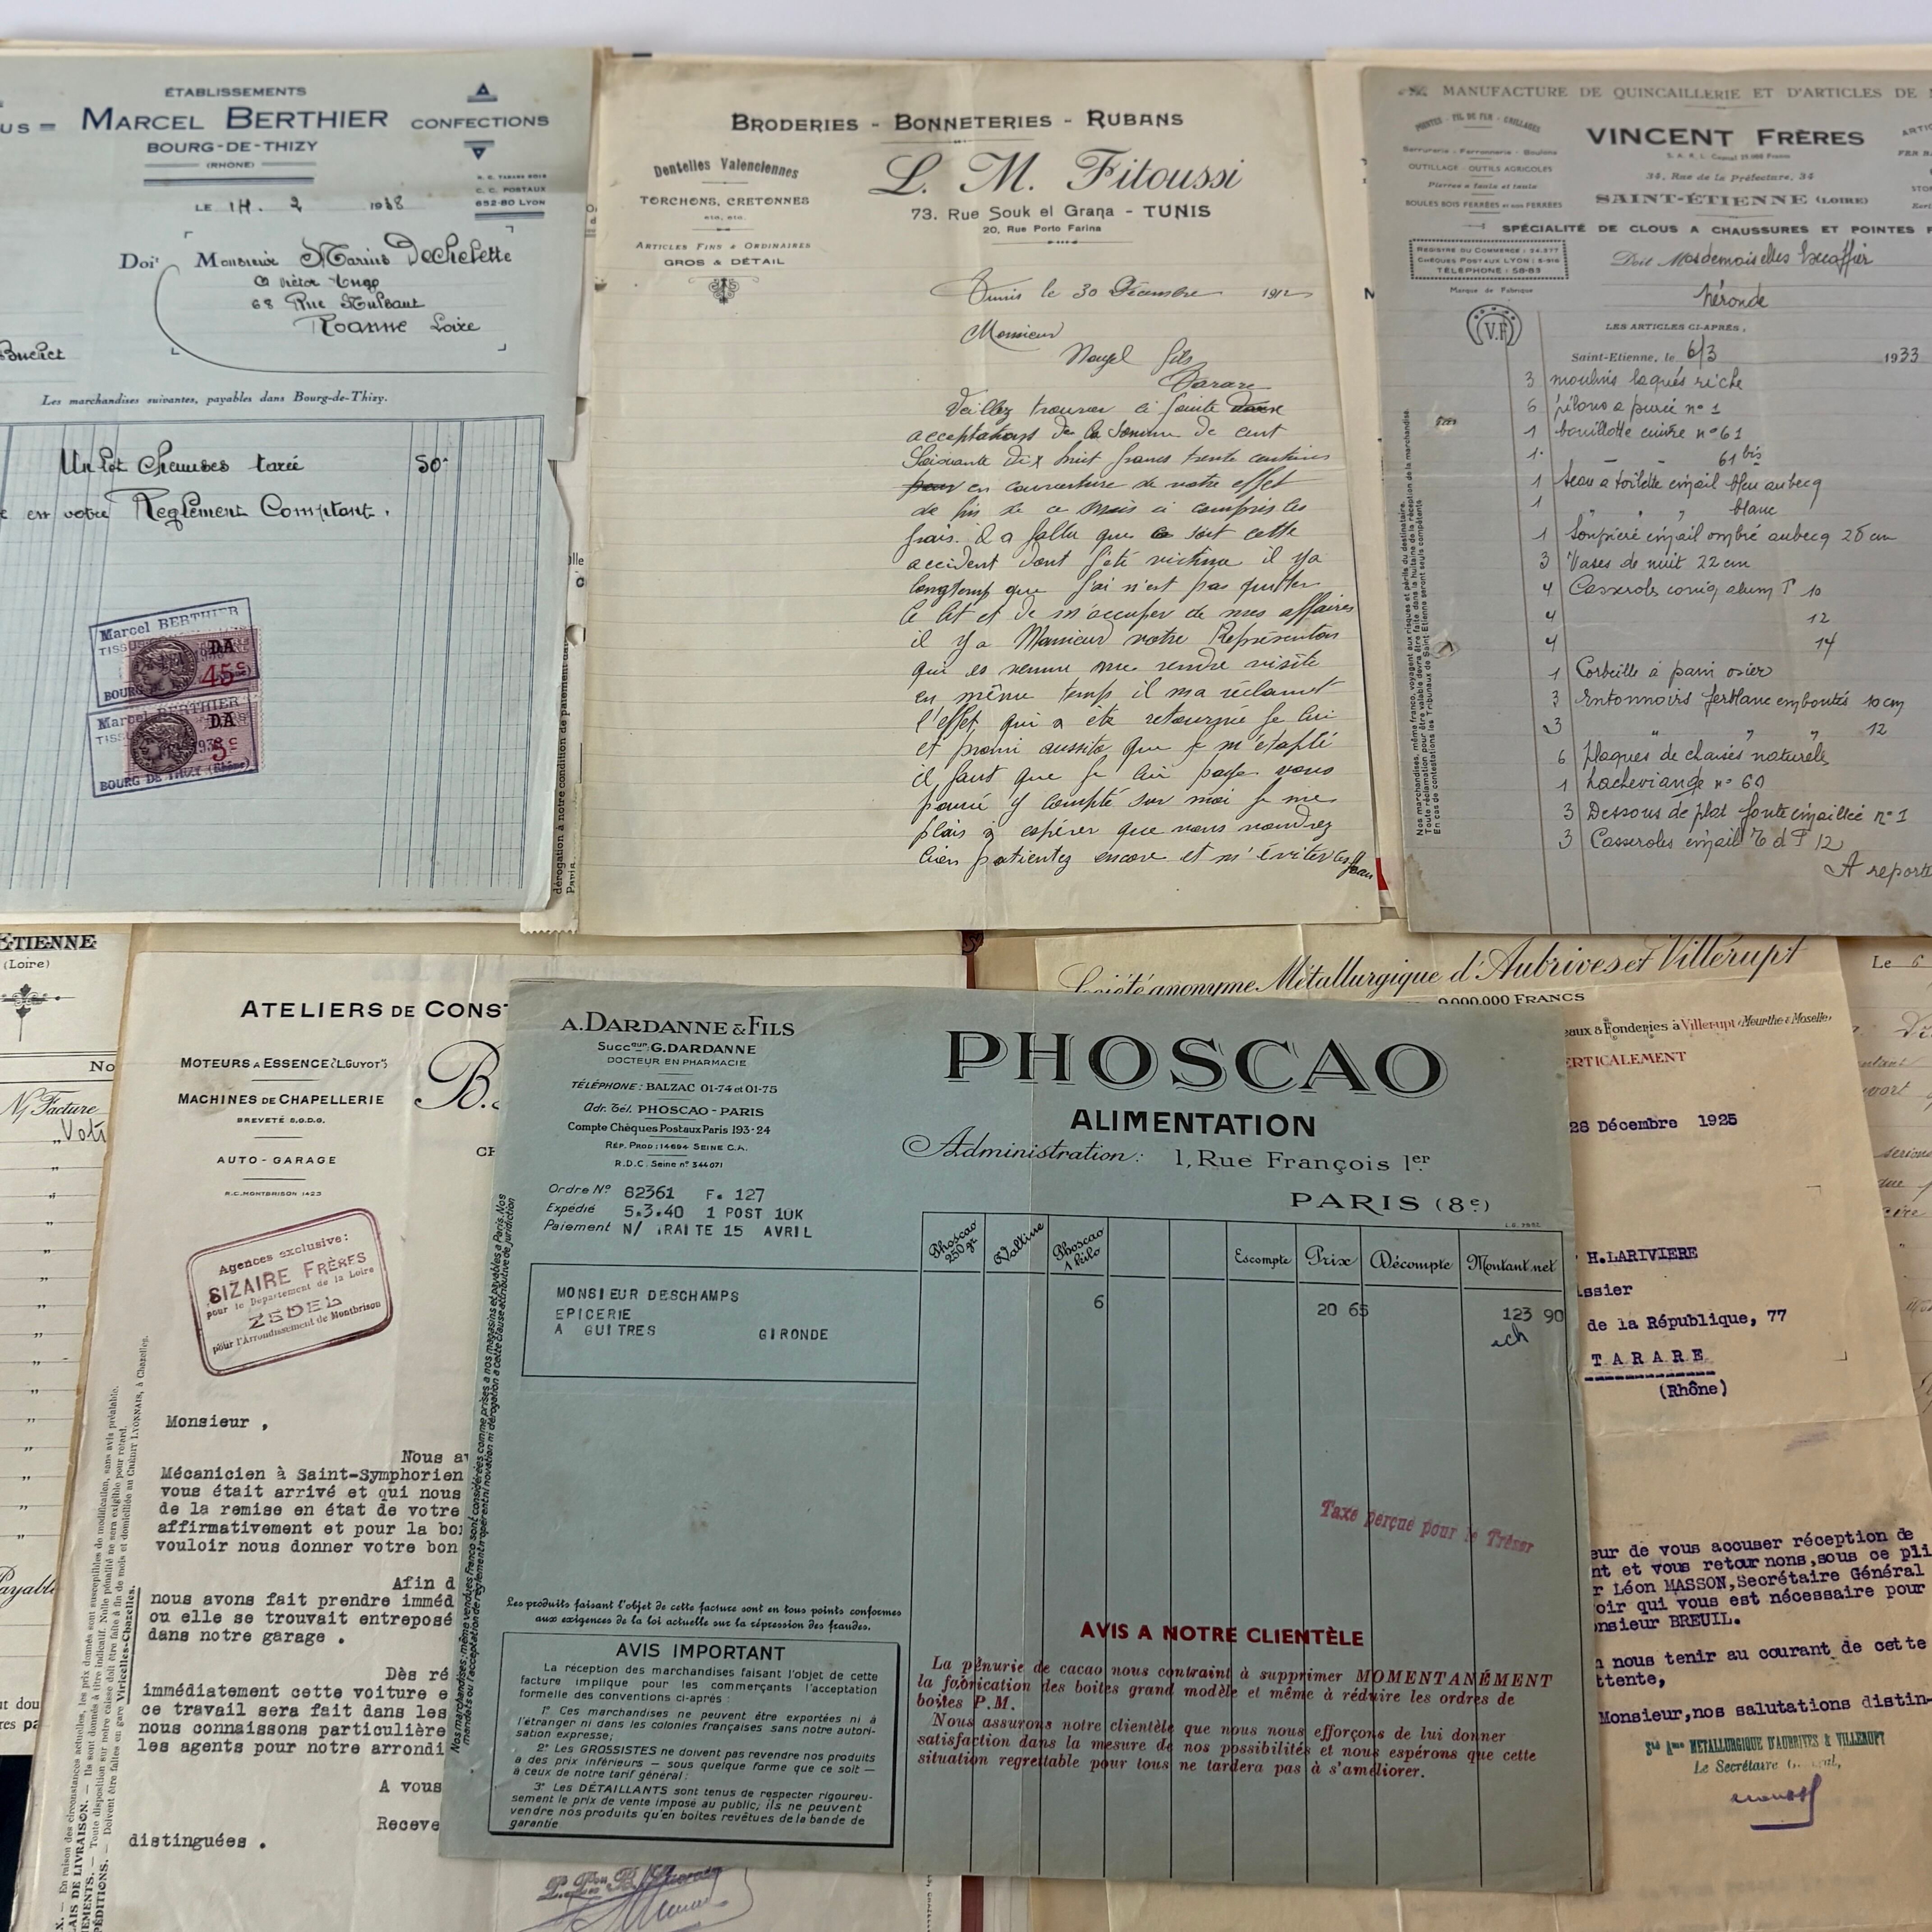 ÉTABLISSEMENTS
US = MARCEL BERTHIER CONFECTIONS
BOURG-DE-THIZY
(RHONE)
R. C. TARARE
C. C. POSTAUX
652-80 LYON
LE 14. 2 1938
Doit Monsieur Marius Dechelette
68 Rue
Roanne Loire
Les marchandises suivantes, payables dans Bourg-de-Thizy.
Un lot Chemises taxée 50
en votre Reglement Comptant.
Marcel BERTHIER
TISSUS
DA
45c
BOURG
Marcel BERTHIER
TISSUS
DA
5c
BOURG DE THIZY (Rhône)
dérogation à notre condition de paiement dans
Paris.
BRODERIES - BONNETERIES - RUBANS
Dentelles Valenciennes
TORCHONS, CRETONNES
etc, etc.
ARTICLES FINS & ORDINAIRES
GROS & DÉTAIL
L. M. Fitoussi
73, Rue Souk el Grana - TUNIS
20, Rue Porto Farina
Tunis le 30 Décembre 1912
Monsieur
fils
Tarare
Veillez trouver ci joint
acceptations de la somme de cent
soisante dix huit francs trente centimes
pour en couverture de votre effet
de fin de ce mois ci compris les
frais. il a fallu que ce soit cette
accident dont j'été victime il ya
longtemp que j'ai n'est pas quitter
le lit et de m'accuper de mes affaires
il ya Monsieur votre Représentan
qui es venue me rendre visite
en même temp il ma réclamet
l'effet, qui a été retournée je lui
et promi aussito que je m'établi
il faut que je lui paye vous
pouvié y compté sur moi je me
plais à espérer que vous voudrez
bien patientez encore et m'éviter les frais
MANUFACTURE DE QUINCAILLERIE ET D'ARTICLES DE M
POINTES - FIL DE FER - GRILLAGES
Serrurerie - Ferronnerie - Boulons
OUTILLAGE - OUTILS AGRICOLES
BOULES BOIS FERRÉES et non FERRÉES
VINCENT FRÈRES
S. A. R. L. Capital 25.000 Francs
34, Rue de la Préfecture, 34
SAINT-ÉTIENNE (LOIRE)
SPÉCIALITÉ DE CLOUS A CHAUSSURES ET POINTES
REGISTRE DU COMMERCE : 24.577
CHÈQUES POSTAUX LYON : 5-916
TÉLÉPHONE : 58-83
Marque de Fabrique
V.F
Doit Mesdemoiselles
Néronde
LES ARTICLES CI-APRÈS,
Saint-Etienne, le 6/3 1933
3 moulins laqués riche
6 pilons a purée n° 1
1 bouillotte cuivre n° 61
1 61 bis
1 seau a toilette émail bleu aubecq
1 " " blanc
1 Soupière émail ombré aubecq 26 cm
3 Vases de nuit 22 cm
4 Casserole coniq alum T 10
4 12
4 14
1 Corbeille à pain osier
3 Entonnoirs ferblanc emboutés 10 cm
3 " " " 12
6 plaques de chaises naturels
1 hacheviande n° 60
3 Dessous de plat fonte émaillée n° 1
3 Casseroles émail 12
A reporte
Nos marchandises, même franco, voyagent aux risques et périls du destinataire.
Toute réclamation pour être valable devra être faite dans la huitaine de la réception de la marchandise.
En cas de contestations les Tribunaux de Saint-Etienne seront seuls compétents
ETIENNE
(Loire)
No
N/ Facture
Votr
Payable
ATELIERS DE CONST
MOTEURS A ESSENCE "L.GUYOT"
MACHINES DE CHAPELLERIE
BREVETÉ S.G.D.G.
AUTO-GARAGE
R.C. MONTBRISON 1423
B.
Agences exclusive:
SIZAIRE FRÈRES
pour le Département de la Loire
ZEDEL
pour l'Arrondissement de Montbrison
Monsieur ,
Nous av
Mécanicien à Saint-Symphorien
vous était arrivé et qui nous
de la remise en état de votre
affirmativement et pour la bo
vouloir nous donner votre bon
Afin d
nous avons fait prendre imméd
ou elle se trouvait entreposé
dans notre garage .
Dès ré
immédiatement cette voiture e
ce travail sera fait dans les
nous connaissons particulière
les agents pour notre arrondi
A vous
Receve
distinguées .
A. DARDANNE & FILS
Succeur G. DARDANNE
DOCTEUR EN PHARMACIE
TÉLÉPHONE : BALZAC 01-74 et 01-75
Adr. Tél. PHOSCAO - PARIS
Compte Chèques Postaux Paris 193-24
RÉP. PROD : 14694 SEINE C.A.
R.D.C. Seine n° 344071
PHOSCAO
ALIMENTATION
Administration : 1, Rue François 1er
PARIS (8e)
Ordre N° 82361 F. 127
Expédié 5.3.40 1 POST 10K
Paiement N/ TRAITE 15 AVRIL
MONSIEUR DESCHAMPS
EPICERIE
A GUITRES GIRONDE
Phoscao 250 gr. Ovaltine Phoscao 1 kilo Escompte Prix Décompte Montant net
6 20 65 123 90
ech
Taxe perçue pour le Trésor
Les produits faisant l'objet de cette facture sont en tous points conformes
aux exigences de la loi actuelle sur la répression des fraudes.
AVIS IMPORTANT
La réception des marchandises faisant l'objet de cette
facture implique pour les commerçants l'acceptation
formelle des conventions ci-après :
1° Ces marchandises ne peuvent être exportées ni à
l'étranger ni dans les colonies françaises sans notre autori-
sation expresse;
2° Les GROSSISTES ne doivent pas revendre nos produits
à des prix inférieurs — sous quelque forme que ce soit —
à ceux de notre tarif général :
3° Les DÉTAILLANTS sont tenus de respecter rigoureu-
sement le prix de vente imposé au public; ils ne peuvent
vendre nos produits qu'en boites revêtues de la bande de
garantie
AVIS A NOTRE CLIENTÈLE
La pénurie de cacao nous contraint à supprimer MOMENTANÉMENT
la fabrication des boites grand modèle et même à réduire les ordres de
boites P.M.
Nous assurons notre clientèle que nous nous efforçons de lui donner
satisfaction dans la mesure de nos possibilités et nous espérons que cette
situation regrettable pour tous ne tardera pas à s'améliorer.
Société anonyme Métallurgique d'Aubrives et Villerupt
000.000 FRANCS
eaux & Fonderies à Villerupt (Meurthe & Moselle)
ERTICALEMENT
26 Décembre 1925
H. LARIVIERE
issier
de la République, 77
TARARE
(Rhône)
eur de vous accuser réception de
nt et vous retournons, sous ce pli
r Léon MASSON, Secrétaire Général
oir qui vous est nécessaire pour
onsieur BREUIL.
n nous tenir au courant de cette
ttente,
Monsieur, nos salutations distin-
Sté Ame METALLURGIQUE D'AUBRIVES & VILLERUPT
Le Secrétaire
Le 6